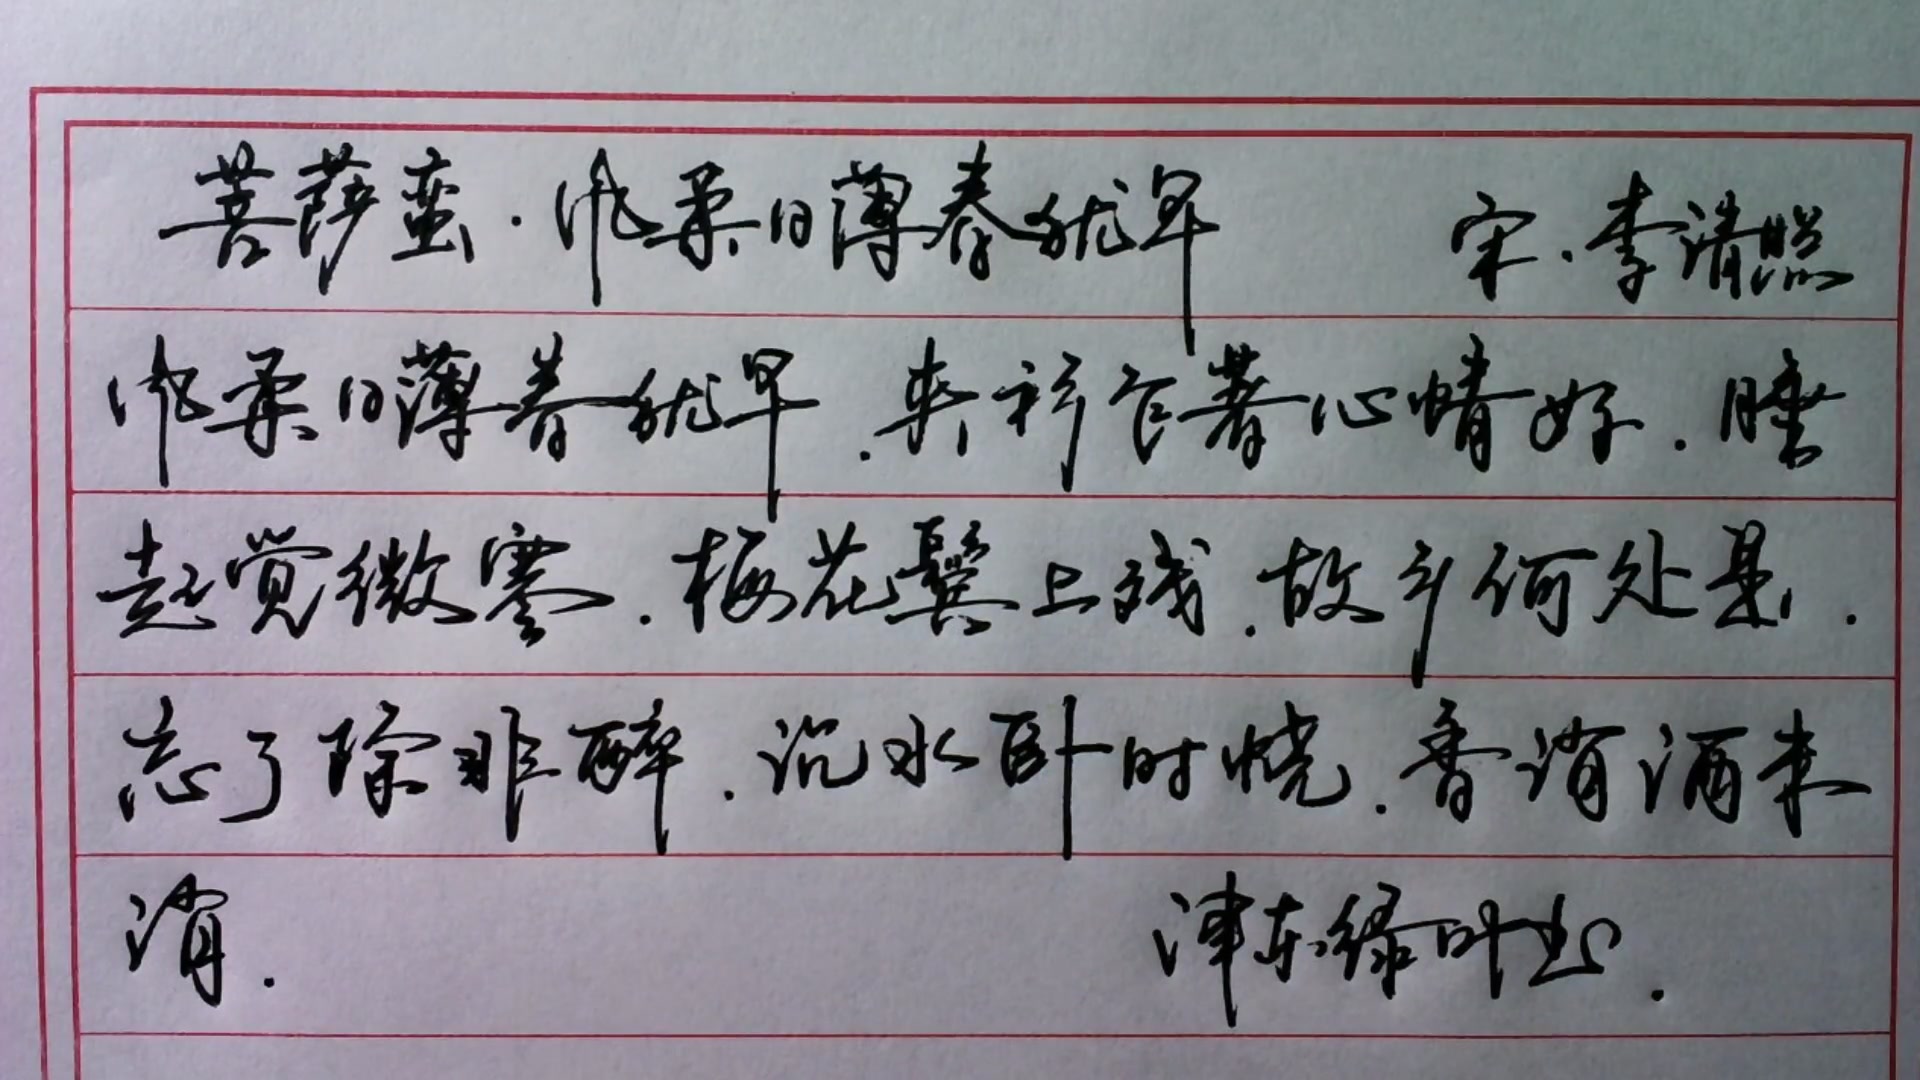 菩萨蛮·风柔日薄春犹早 宋.李清照
风柔日薄春犹早.夹衫乍著心情好.睡
起觉微寒.梅花鬓上残.故乡何处是.
忘了除非醉.沉水卧时烧.香消酒未
消.
津东绿叶书.